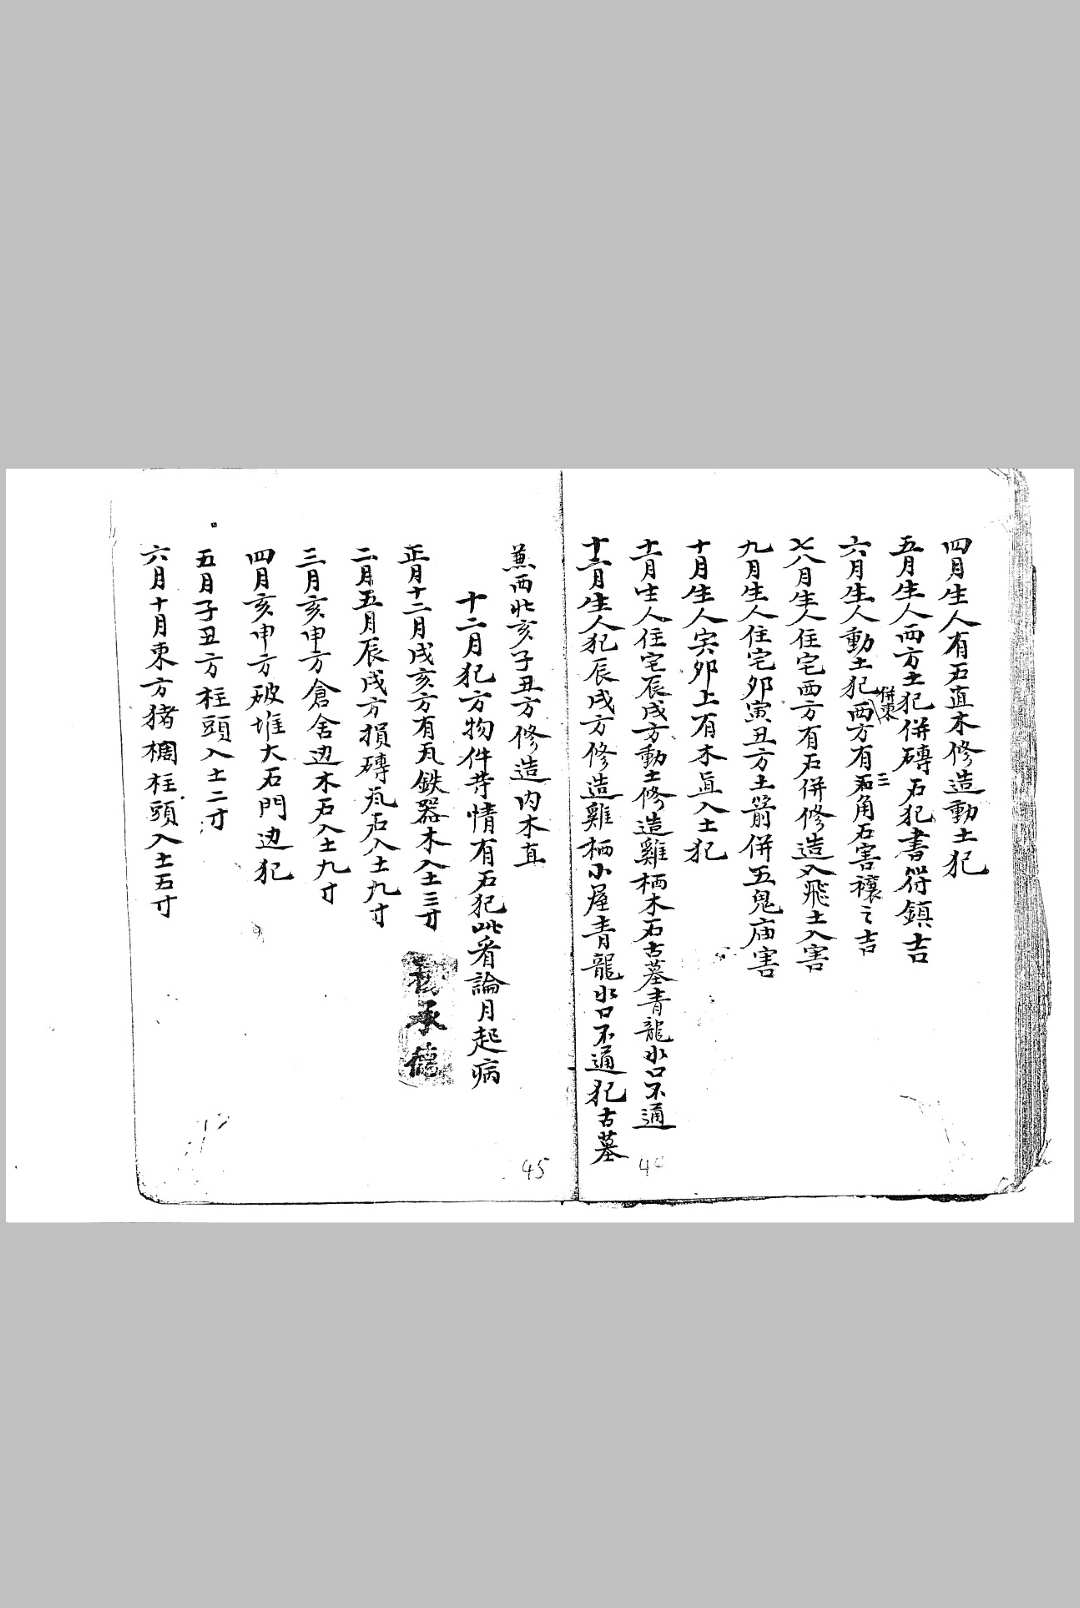 四月生人有五直木修造動土犯
五月生人西方土犯併磚石犯書符鎮吉
六月生人動土犯併東西方有三角石害禳之吉
七八月生人住宅西方有石併修造入飛土入害
九月生人住宅卯寅丑方土箭併五鬼庙害
十月生人宍卯上有木直入土犯
十一月生人住宅辰戌方動土修造雞栖木石古墓青龍水口不通
十二月生人犯辰戌方修造雞栖小屋青龍水口不通犯古墓
兼西北亥子丑方修造内木直
十二月犯方物件等情有石犯此看論月起病
正月十二月戌亥方有瓦鉄器木入土三寸
二月五月辰戌方損磚瓦石入土九寸
三月亥申方倉舍边木石入土九寸
四月亥申方破堆大石門边犯
五月子丑方柱頭入土二寸
六月十月東方猪欄柱頭入土五寸
承德
45